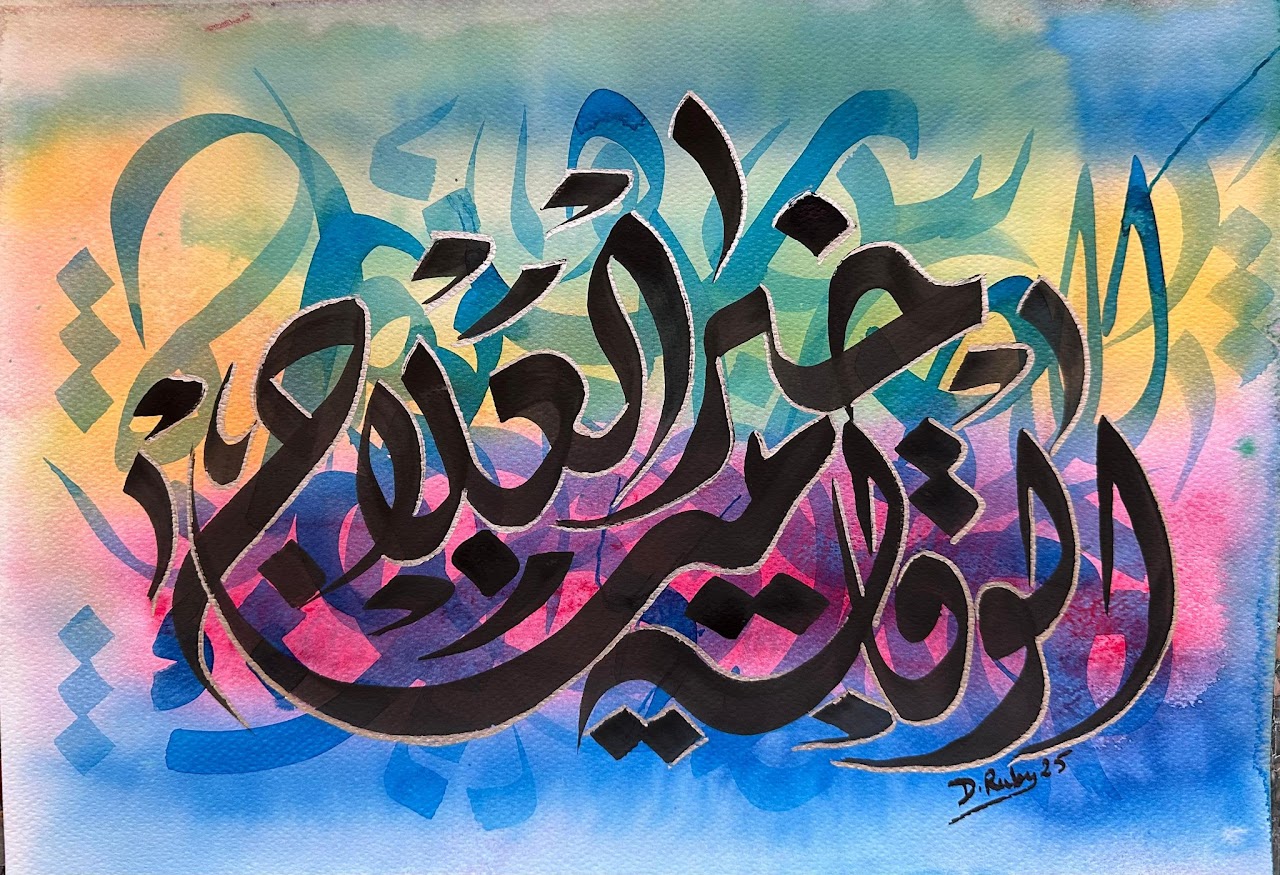 الوقاية خير من العلاج
D. Ruby 25